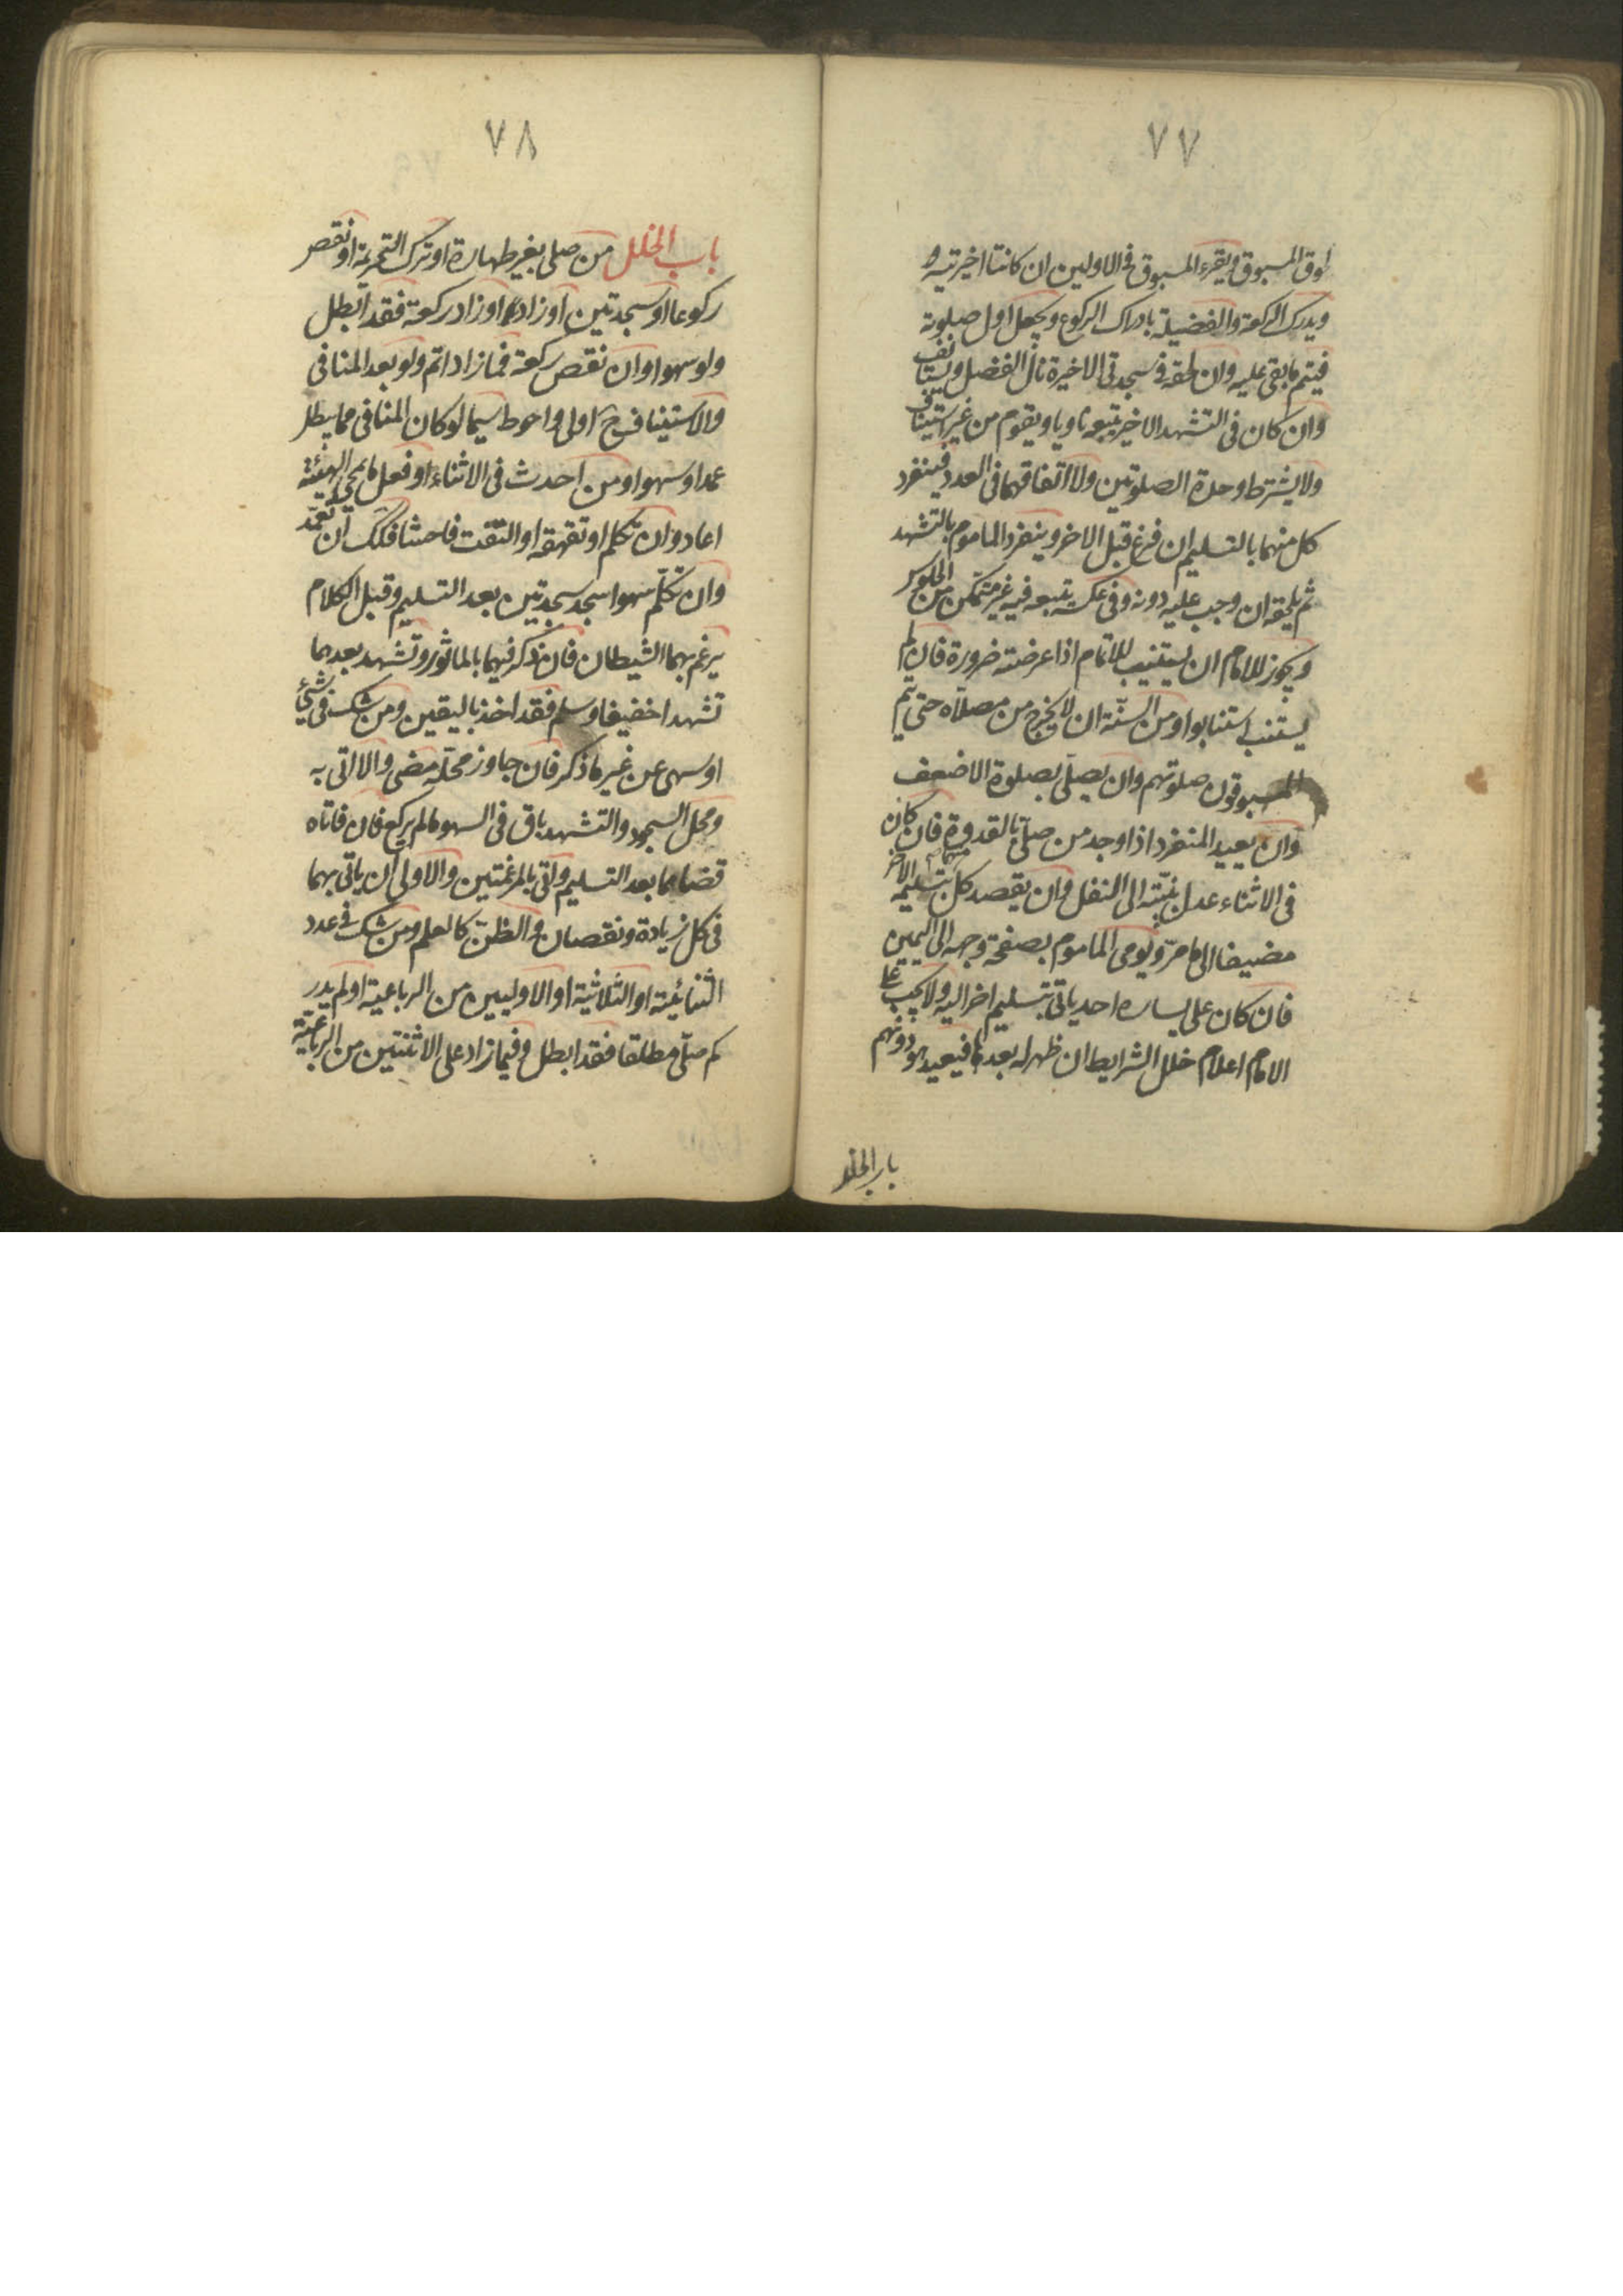 ٧٧
اوق المسبوق ويقرء المسبوق فى الاوليين ان كانتا اخيرتيه و
ويدرك الركعة والفضيلة بادراك الركوع ويجعل اول صلوته
فيتم ما بقى عليه وان لحقه فى سجدتى الاخيرة نال الفضل ويستانف
وان كان فى التشهد الاخير يتبعه ناويا ويقوم من غير استيناف
ولا يشترط وحدة الصلوتين ولا اتفاقهما فى العدد فينفرد
كل منهما بالتسليم ان فرغ قبل الاخر وينفرد الماموم بالتشهد
ثم يلحقه ان وجب عليه دونه وفى عكسه يتبعه فيه غير متمكن من الجلوس
ويجوز للامام ان يستنيب للاتمام اذا عرضته ضرورة فان لم
يستنب استنابوا ومن السنّة ان لا يخرج من مصلّاه حتى يتم
المسبوقون صلوتهم وان يصلّى بصلوة الاضعف
وان يعيد المنفرد اذا وجد من صلّى بالقدوة فان كان
فى الاثناء عدل نيّته الى النفل وان يقصد كل بتسليمه الاخر
مضيفا الى ما مرّ ويومى الماموم بصفحة وجهه الى اليمين
فان كان على يساره احد ياتى بتسليم اخر اليه ولا يجب على
الامام اعلام خلل الشرايط ان ظهر له بعدها فيعيد هو دونهم
باب الخلل
٧٨
باب الخلل من صلى بغير طهارة او ترك التحريمة او نقص
ركوعا او سجدتين او زاده او زاد ركعة فقد ابطل
ولو سهوا وان نقص ركعة فما زاد اتم ولو بعد المنافى
والاستيناف ح اولى واحوط سيما لو كان المنافى مما يبطل
عمدا وسهوا ومن احدث فى الاثناء او فعل ما يمحى الهيئة
اعاد وان تكلم او تقهقه او التفت فاحشا فكك ان تعمّد
وان تكلّم سهوا سجد سجدتين بعد التسليم وقبل الكلام
يرغم بهما الشيطان فان ذكر فيهما بالماثور وتشهد بعدهما
تشهدا خفيفا وسلم فقد اخذ باليقين ومن شك فى شئ
او سهى عن غير ما ذكر فان جاوز محلّه مضى والا اتى به
ومحل السجود والتشهد باق فى السهو ما لم يركع فان فاتاه
قضاهما بعد التسليم واتى بالمرغمتين والاولى ان ياتى بهما
فى كل زيادة ونقصان والظنّ كالعلم ومن شك فى عدد
الثنائيّة او الثلاثية او الاوليين من الرباعية او لم يدر
كم صلّى مطلقا فقد ابطل وفيما زاد على الاثنتين من الرباعيّة